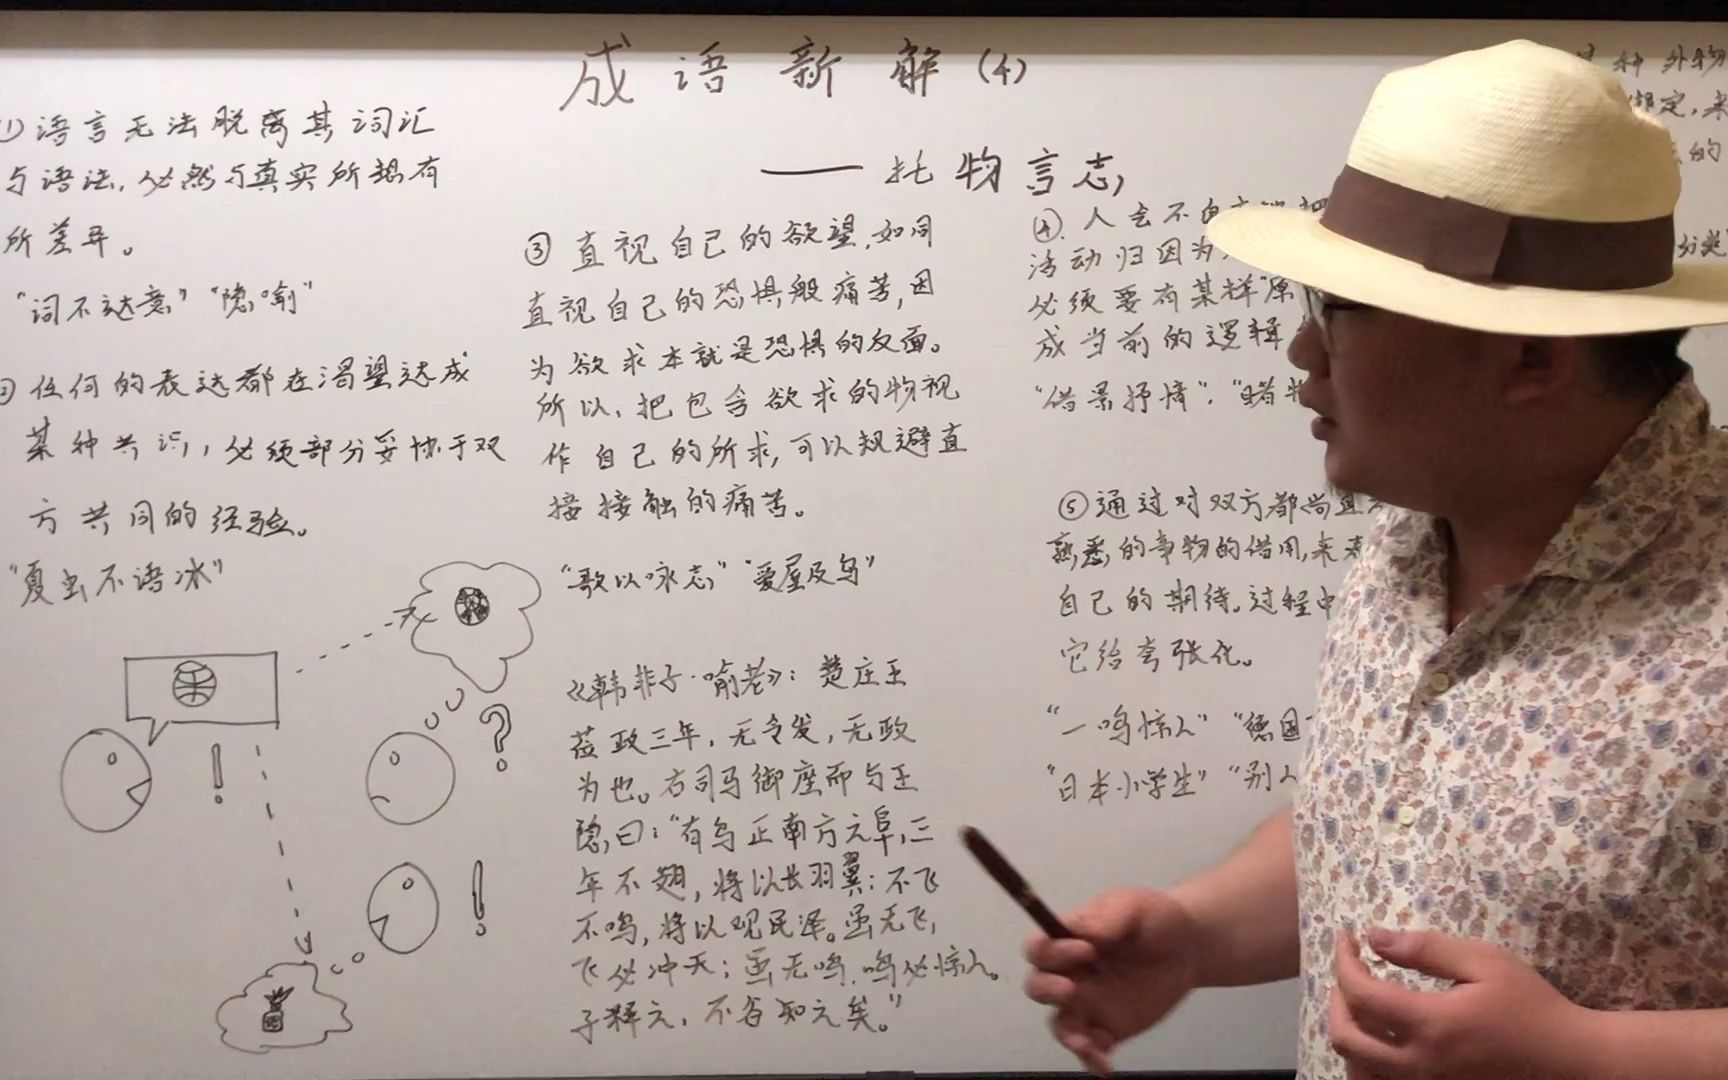 成语新解(4)
——托物言志
①语言无法脱离其词汇
与语法,必然与真实所想有
所差异。
"词不达意" "隐喻"
②任何的表达都在渴望达成
某种共识,必须部分妥协于双
方共同的经验。
"夏虫不语冰"
果
!
?
!
③直视自己的欲望,如同
直视自己的恐惧般痛苦,因
为欲求本就是恐惧的反面。
所以,把包含欲求的物视
作自己的所求,可以规避直
接接触的痛苦。
"歌以咏志" "爱屋及乌"
《韩非子·喻老》:楚庄王
莅政三年,无令发,无政
为也。右司马御座而与王
隐,曰:"有鸟止南方之阜,三
年不翅,将以长羽翼;不飞
不鸣,将以观民泽。虽无飞,
飞必冲天;虽无鸣,鸣必惊人。
子释之,不谷知之矣。"
④.人会不自
活动归因为
必须要有某样"原
成当前的逻辑
"借景抒情"."睹物
⑤通过对双方都尚且
熟悉的事物的借用,来表
自己的期待。过程中
它给夸张化。
"一鸣惊人" "德国
"日本小学生" "别人
种外物
绑定,来
的
分类